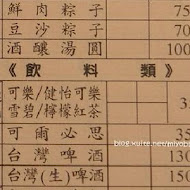 鮮肉粽子 75
豆沙粽子 70
酒釀湯圓 100
《飲料類》
可樂/健怡可樂
雪碧/檸檬紅茶 3
可爾必思 35
台灣啤酒 130
台灣(生)啤酒 150
blog.xuite.net/miyop